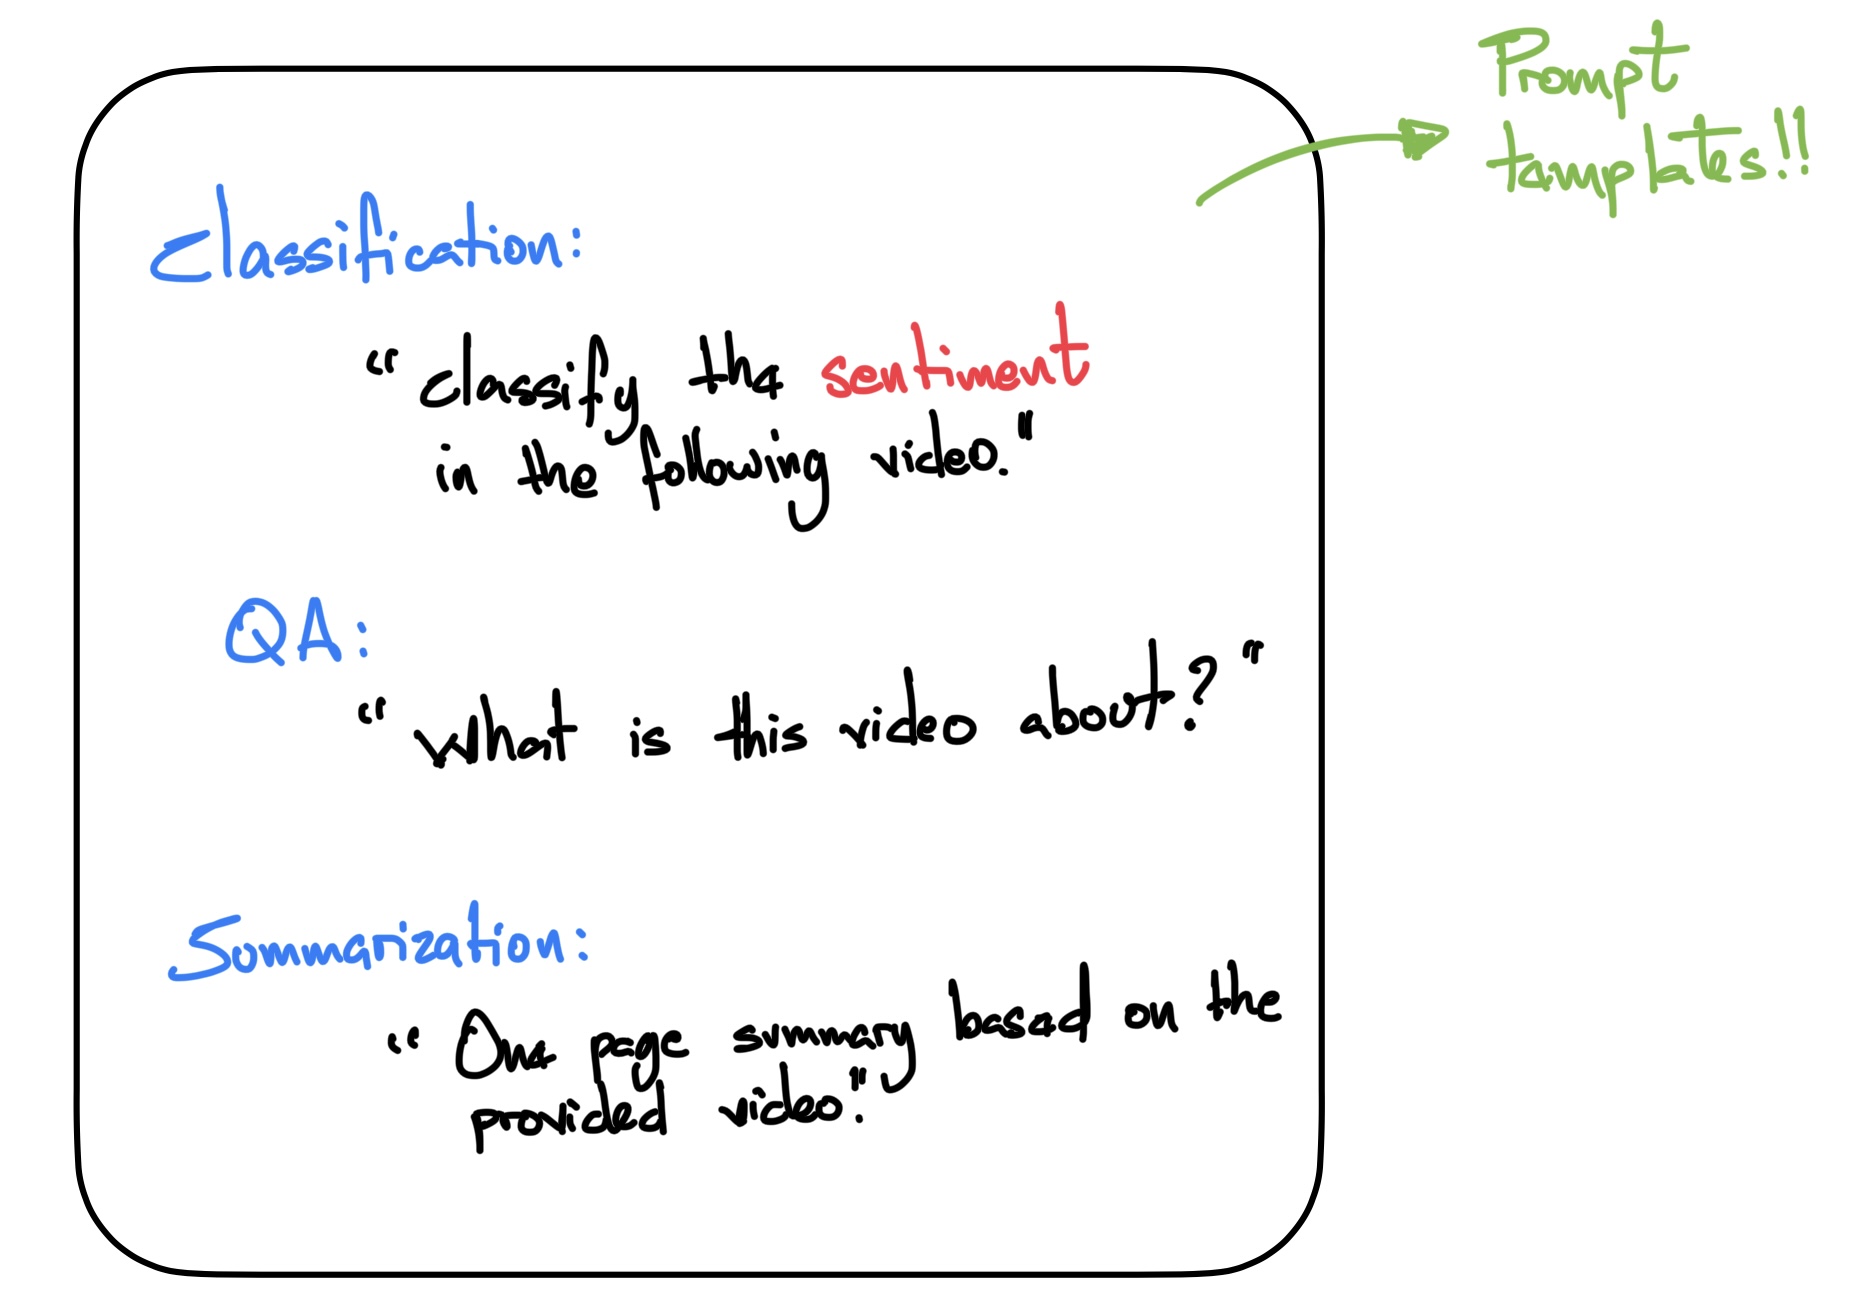 Prompt
tamplates!!
Classification:
"classify the sentiment
in the following video."
QA:
"What is this video about?"
Summarization:
"One page summary based on the
provided video."